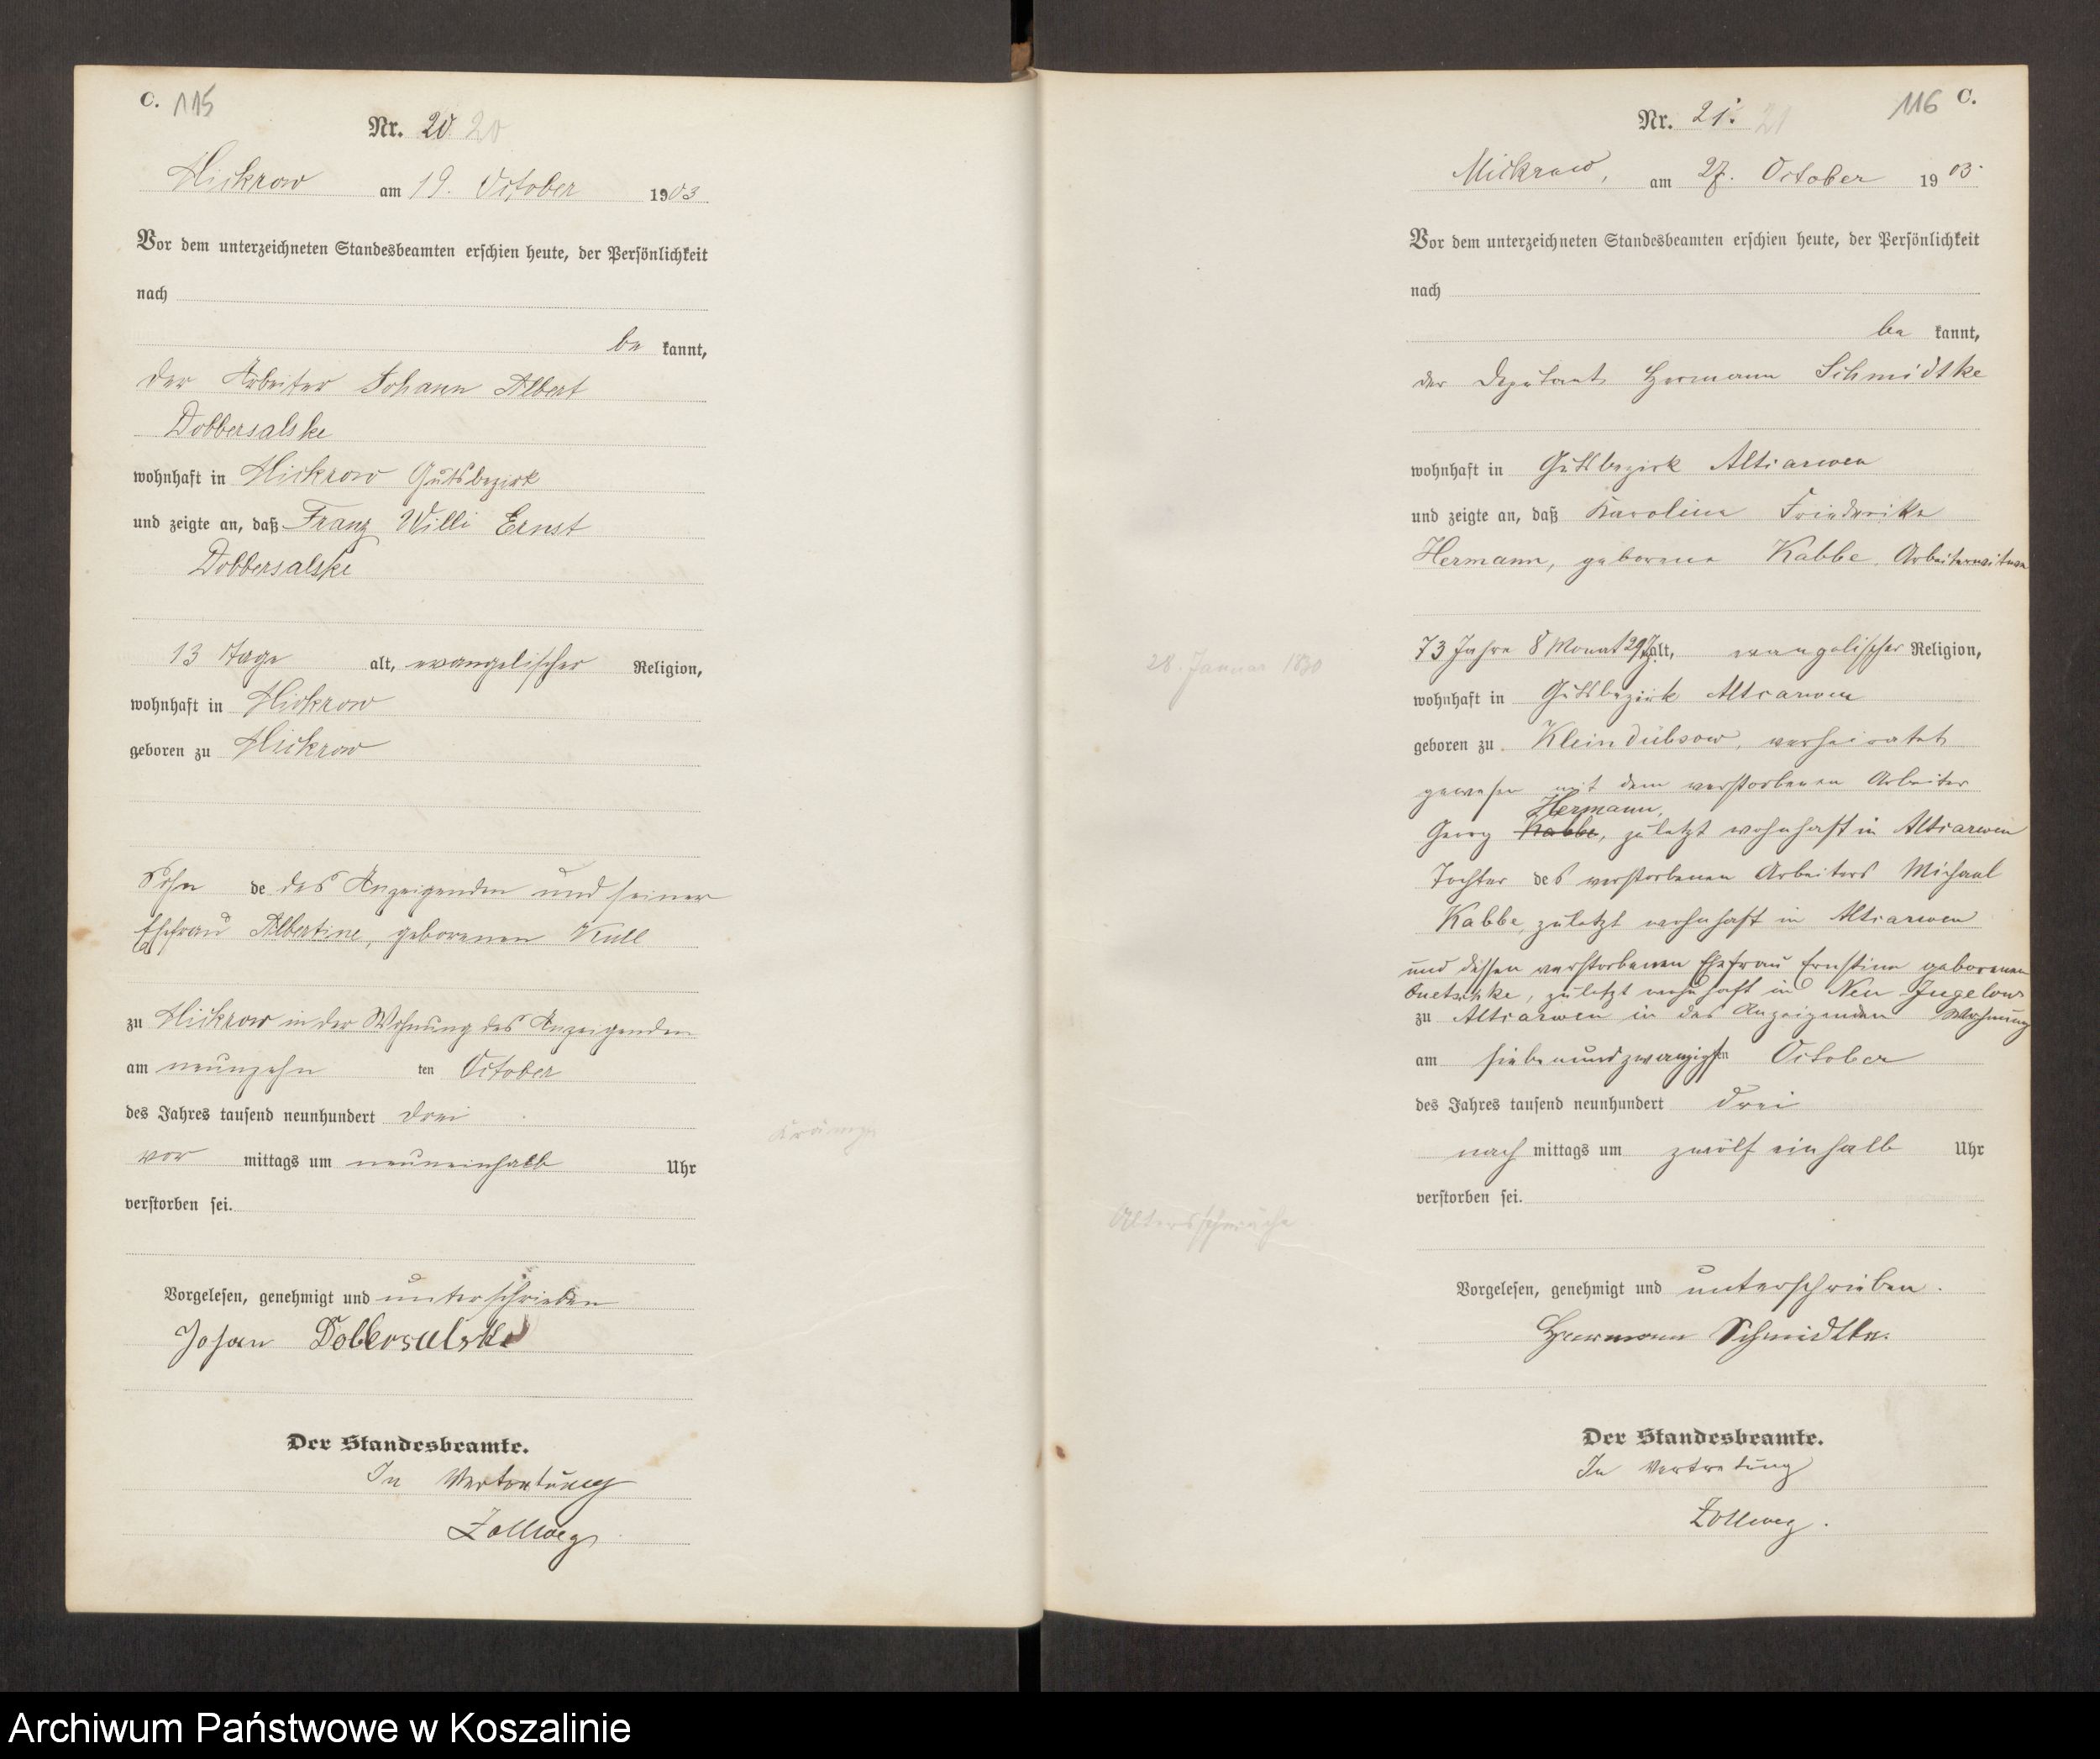 C. 115
Nr. 20. 20
Mickrow am 19. October 1903
Vor dem unterzeichneten Standesbeamten erschien heute, der Persönlichkeit
nach
be kannt,
der Arbeiter Johann Albert
Dobbersalske
wohnhaft in Mickrow Gutsbezirk
und zeigte an, daß Franz Willi Ernst
Dobbersalske
13 Tage alt, evangelischer Religion,
wohnhaft in Mickrow
geboren zu Mickrow
Sohn de des Anzeigenden und seiner
Ehefrau Albertine, geborenen Kull
zu Mickrow in der Wohnung des Anzeigenden
am neunzehn ten October
des Jahres tausend neunhundert drei
vor mittags um neuneinhalb Uhr
verstorben sei.
Krämpfe
Vorgelesen, genehmigt und unterschrieben
Johan Dobbersalske
Der Standesbeamte.
In Vertretung
Zollweg
116 C.
Nr. 21. 21
Mickrow, am 27. October 1903
Vor dem unterzeichneten Standesbeamten erschien heute, der Persönlichkeit
nach
be kannt,
der Deputant Hermann Schmidtke
wohnhaft in Gutsbezirk Altjarwen
und zeigte an, daß Karoline Friederike
Hermann, geborene Kabbe, Arbeiterwitwe
73 Jahre 8 Monat 29 T. alt, evangelischer Religion,
28. Januar 1830
wohnhaft in Gutsbezirk Altjarwen
geboren zu Klein Dübsow, verheiratet
gewesen mit dem verstorbenen Arbeiter
Hermann,
Georg Kabbe, zuletzt wohnhaft in Altjarwen
Tochter des verstorbenen Arbeiters Michael
Kabbe, zuletzt wohnhaft in Altjarwen
und dessen verstorbenen Ehefrau Ernstine geborenen
zuletzt wohnhaft in Neu Jugelow
zu Altjarwen in des Anzeigenden Wohnung
am siebenundzwanzigsten October
des Jahres tausend neunhundert drei
nach mittags um zwölf einhalb Uhr
verstorben sei.
Altersschwäche
Vorgelesen, genehmigt und unterschrieben.
Hermann Schmidtke.
Der Standesbeamte.
In Vertretung
Zollweg.
Archiwum Państwowe w Koszalinie